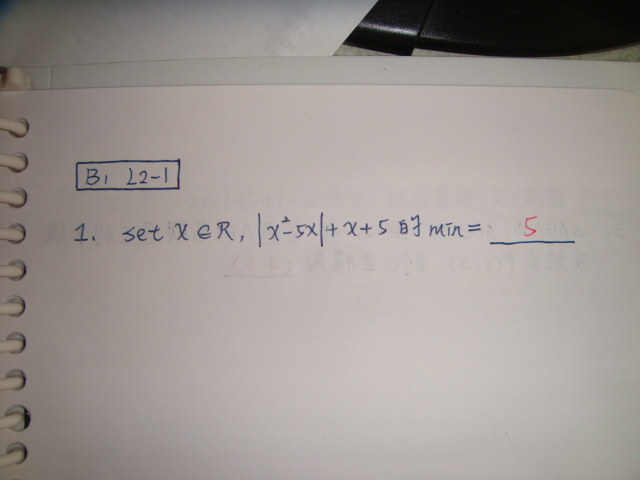 B1 L2-1
1. set x∈R, |x²-5x|+x+5 的 min = 5